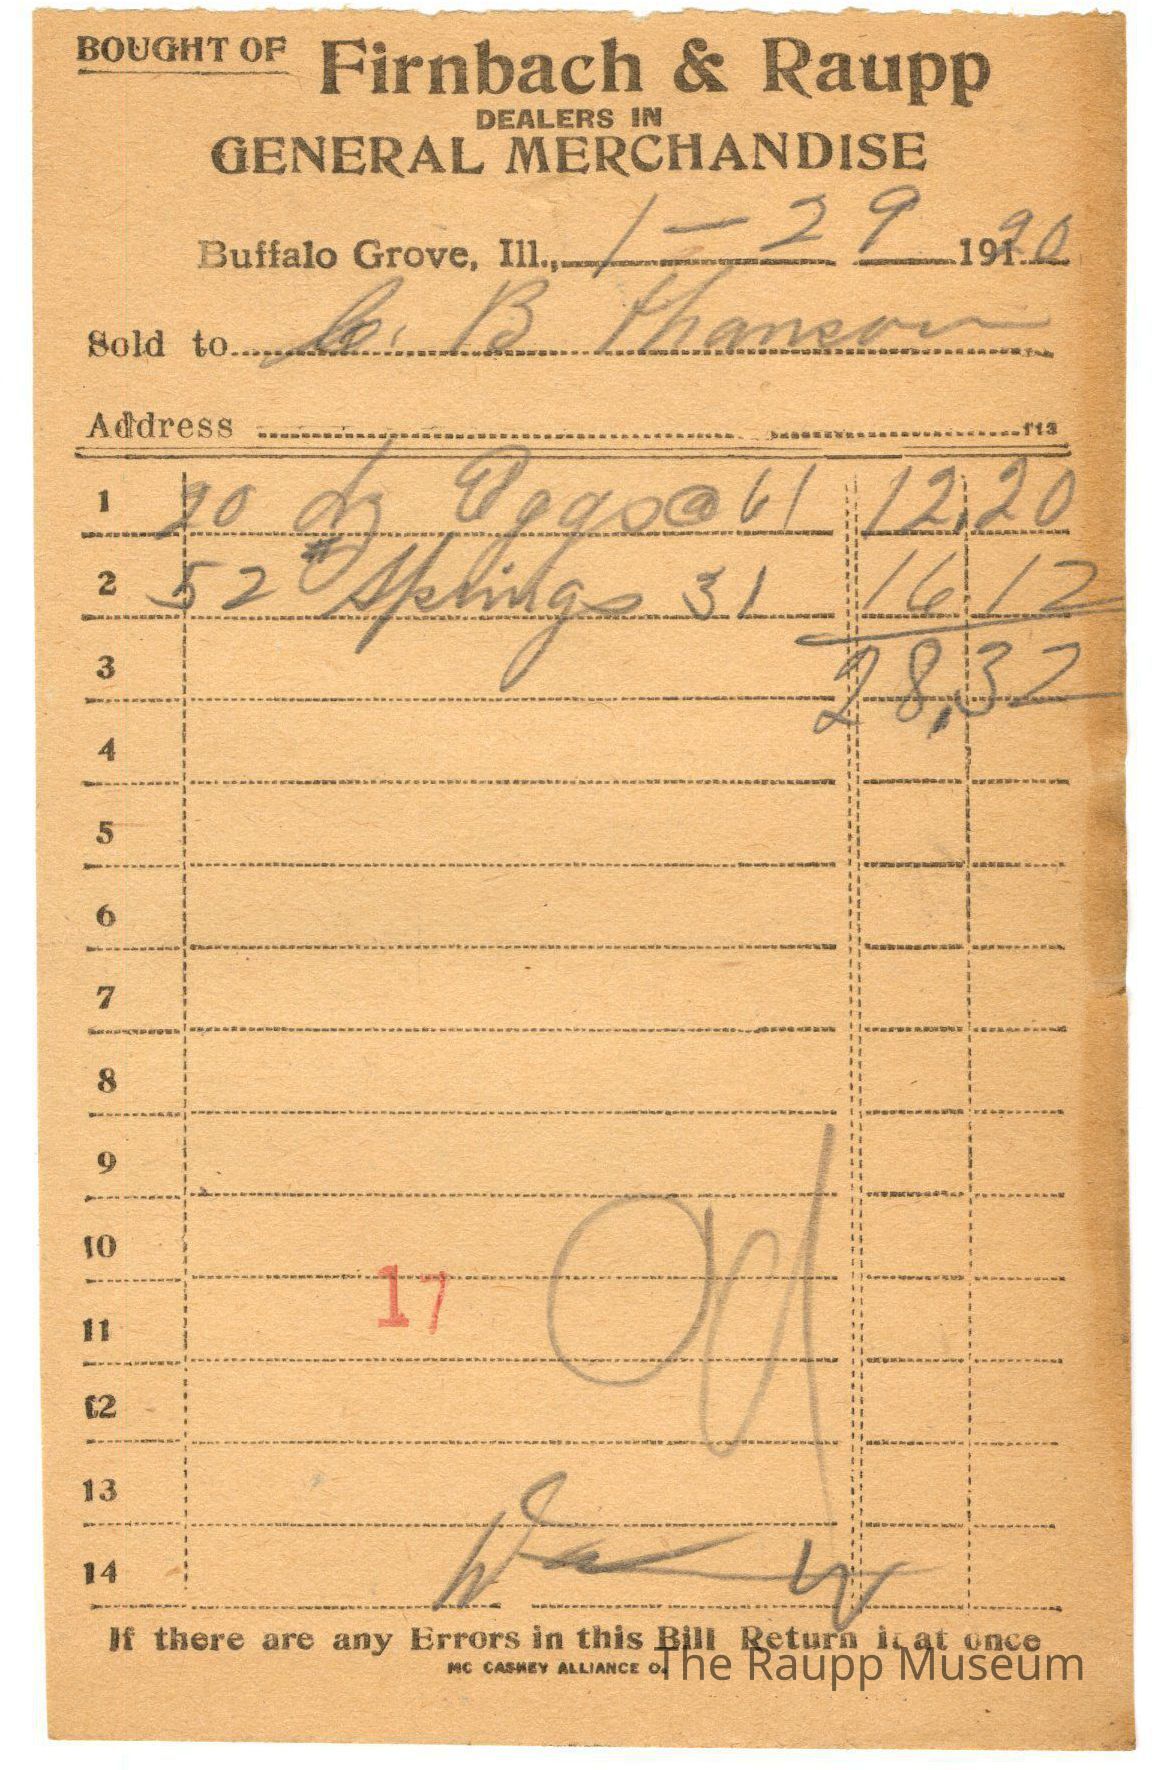 BOUGHT OF Firnbach & Raupp
DEALERS IN
GENERAL MERCHANDISE
Buffalo Grove, Ill., 1 - 29 1920
Sold to B Thanson
Address 113
1 20 dz Eggs @ 61 12,20
2 52 # Springs 31 16 12
3 28,32
4
5
6
7
8
9
10
17
11
12
13
14
If there are any Errors in this Bill Return it at once
MC CASKEY ALLIANCE O.
The Raupp Museum